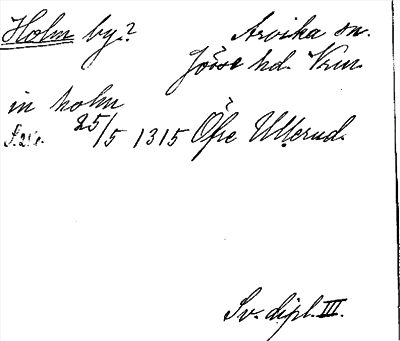 Holm by? Arvika sn.
Jösse hd. Vrm.
in holm
25/5 1315 Öfre Ullerud.
Sv. dipl. III.